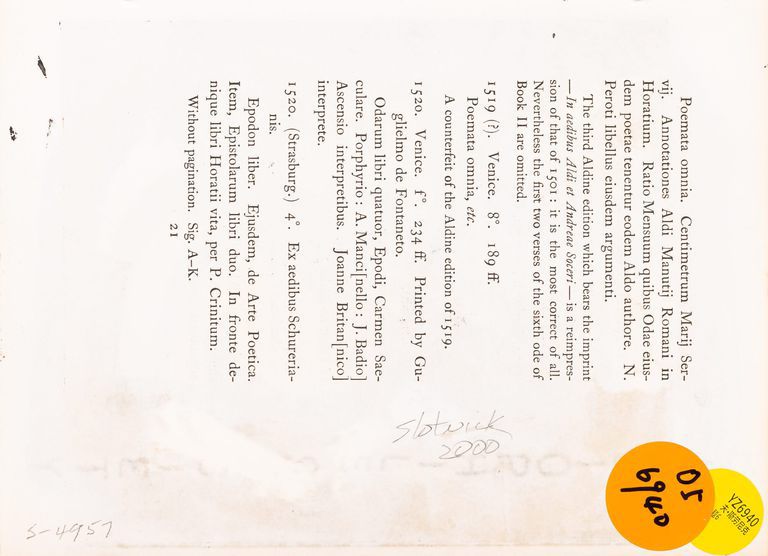 Poemata omnia. Centimetrum Marij Ser-
vij. Annotationes Aldi Manutij Romani in
Horatium. Ratio Mensuum quibus Odae eius-
dem poetae tenentur eodem Aldo authore. N.
Peroti libellus eiusdem argumenti.
The third Aldine edition which bears the imprint
—In aedibus Aldi et Andreae Soceri—is a reimpres-
sion of that of 1501: it is the most correct of all.
Nevertheless the first two verses of the sixth ode of
Book II are omitted.
1519 (?). Venice. 8°. 189 ff.
Poemata omnia, etc.
A counterfeit of the Aldine edition of 1519.
1520. Venice. f°. 234 ff. Printed by Gu-
glielmo de Fontaneto.
Odarum libri quatuor, Epodi, Carmen Sae-
culare. Porphyrio: A. Manci[nello: J. Badio]
Ascensio interpretibus. Joanne Britan[nico]
interprete.
1520. (Strasburg.) 4°. Ex aedibus Schureria-
nis.
Epodon liber. Ejusdem, de Arte Poetica.
Item, Epistolarum libri duo. In fronte de-
nique libri Horatii vita, per P. Crinitum.
Without pagination. Sig. A–K.
21
Slotnick
2000
S-4957
05
6940
YZ6940